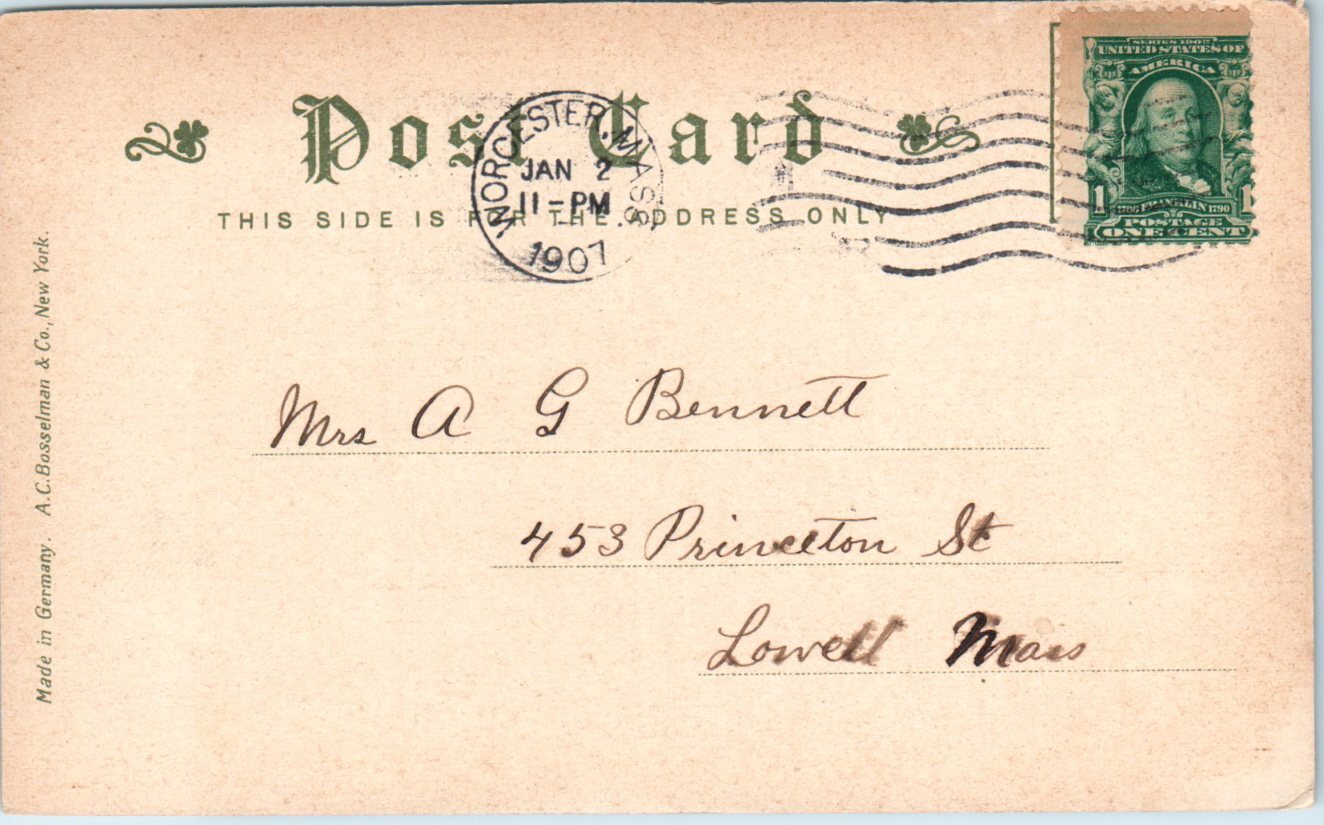 Post Card
THIS SIDE IS FOR THE ADDRESS ONLY
WORCESTER, MASS.
JAN 2
11-PM
1907
SERIES 1902
UNITED STATES OF
AMERICA
1 1706 FRANKLIN 1790 1
POSTAGE
ONE CENT
Mrs A G Bennett
453 Princeton St
Lowell Mass
Made in Germany. A.C. Bosselman & Co., New York.